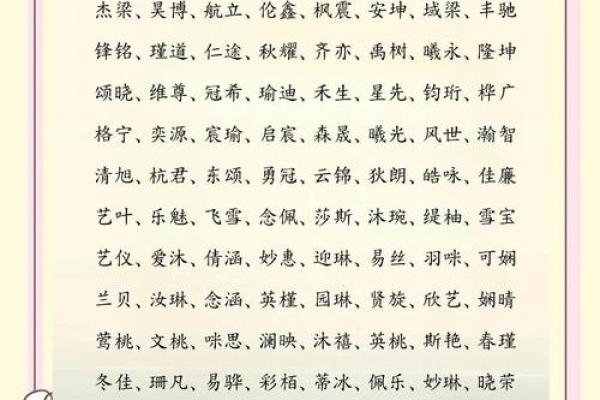 杰梁、昊博、航立、伦鑫、枫震、安坤、域梁、丰驰
锋铭、瑾道、仁途、秋耀、齐亦、禹树、曦永、隆坤
颂晓、维尊、冠希、瑜迪、禾生、星先、钧珩、桦广
格宁、奕源、宸瑜、启宸、森晟、曦光、风世、瀚智
清旭、杭君、东颂、勇冠、云锦、狄朗、皓咏、佳廉
艺叶、乐魅、飞雪、念佩、莎斯、沐琬、缇柚、雪宝
艺仪、爱沐、倩涵、妙惠、迎琳、易丝、羽咪、可娴
兰贝、汝琳、念涵、英槿、园琳、贤旋、欣艺、娴晴
莺桃、文桃、咪思、澜映、沐禧、英桃、斯艳、春瑾
冬佳、珊凡、易骅、彩栢、蒂冰、佩乐、妙琳、晓荣